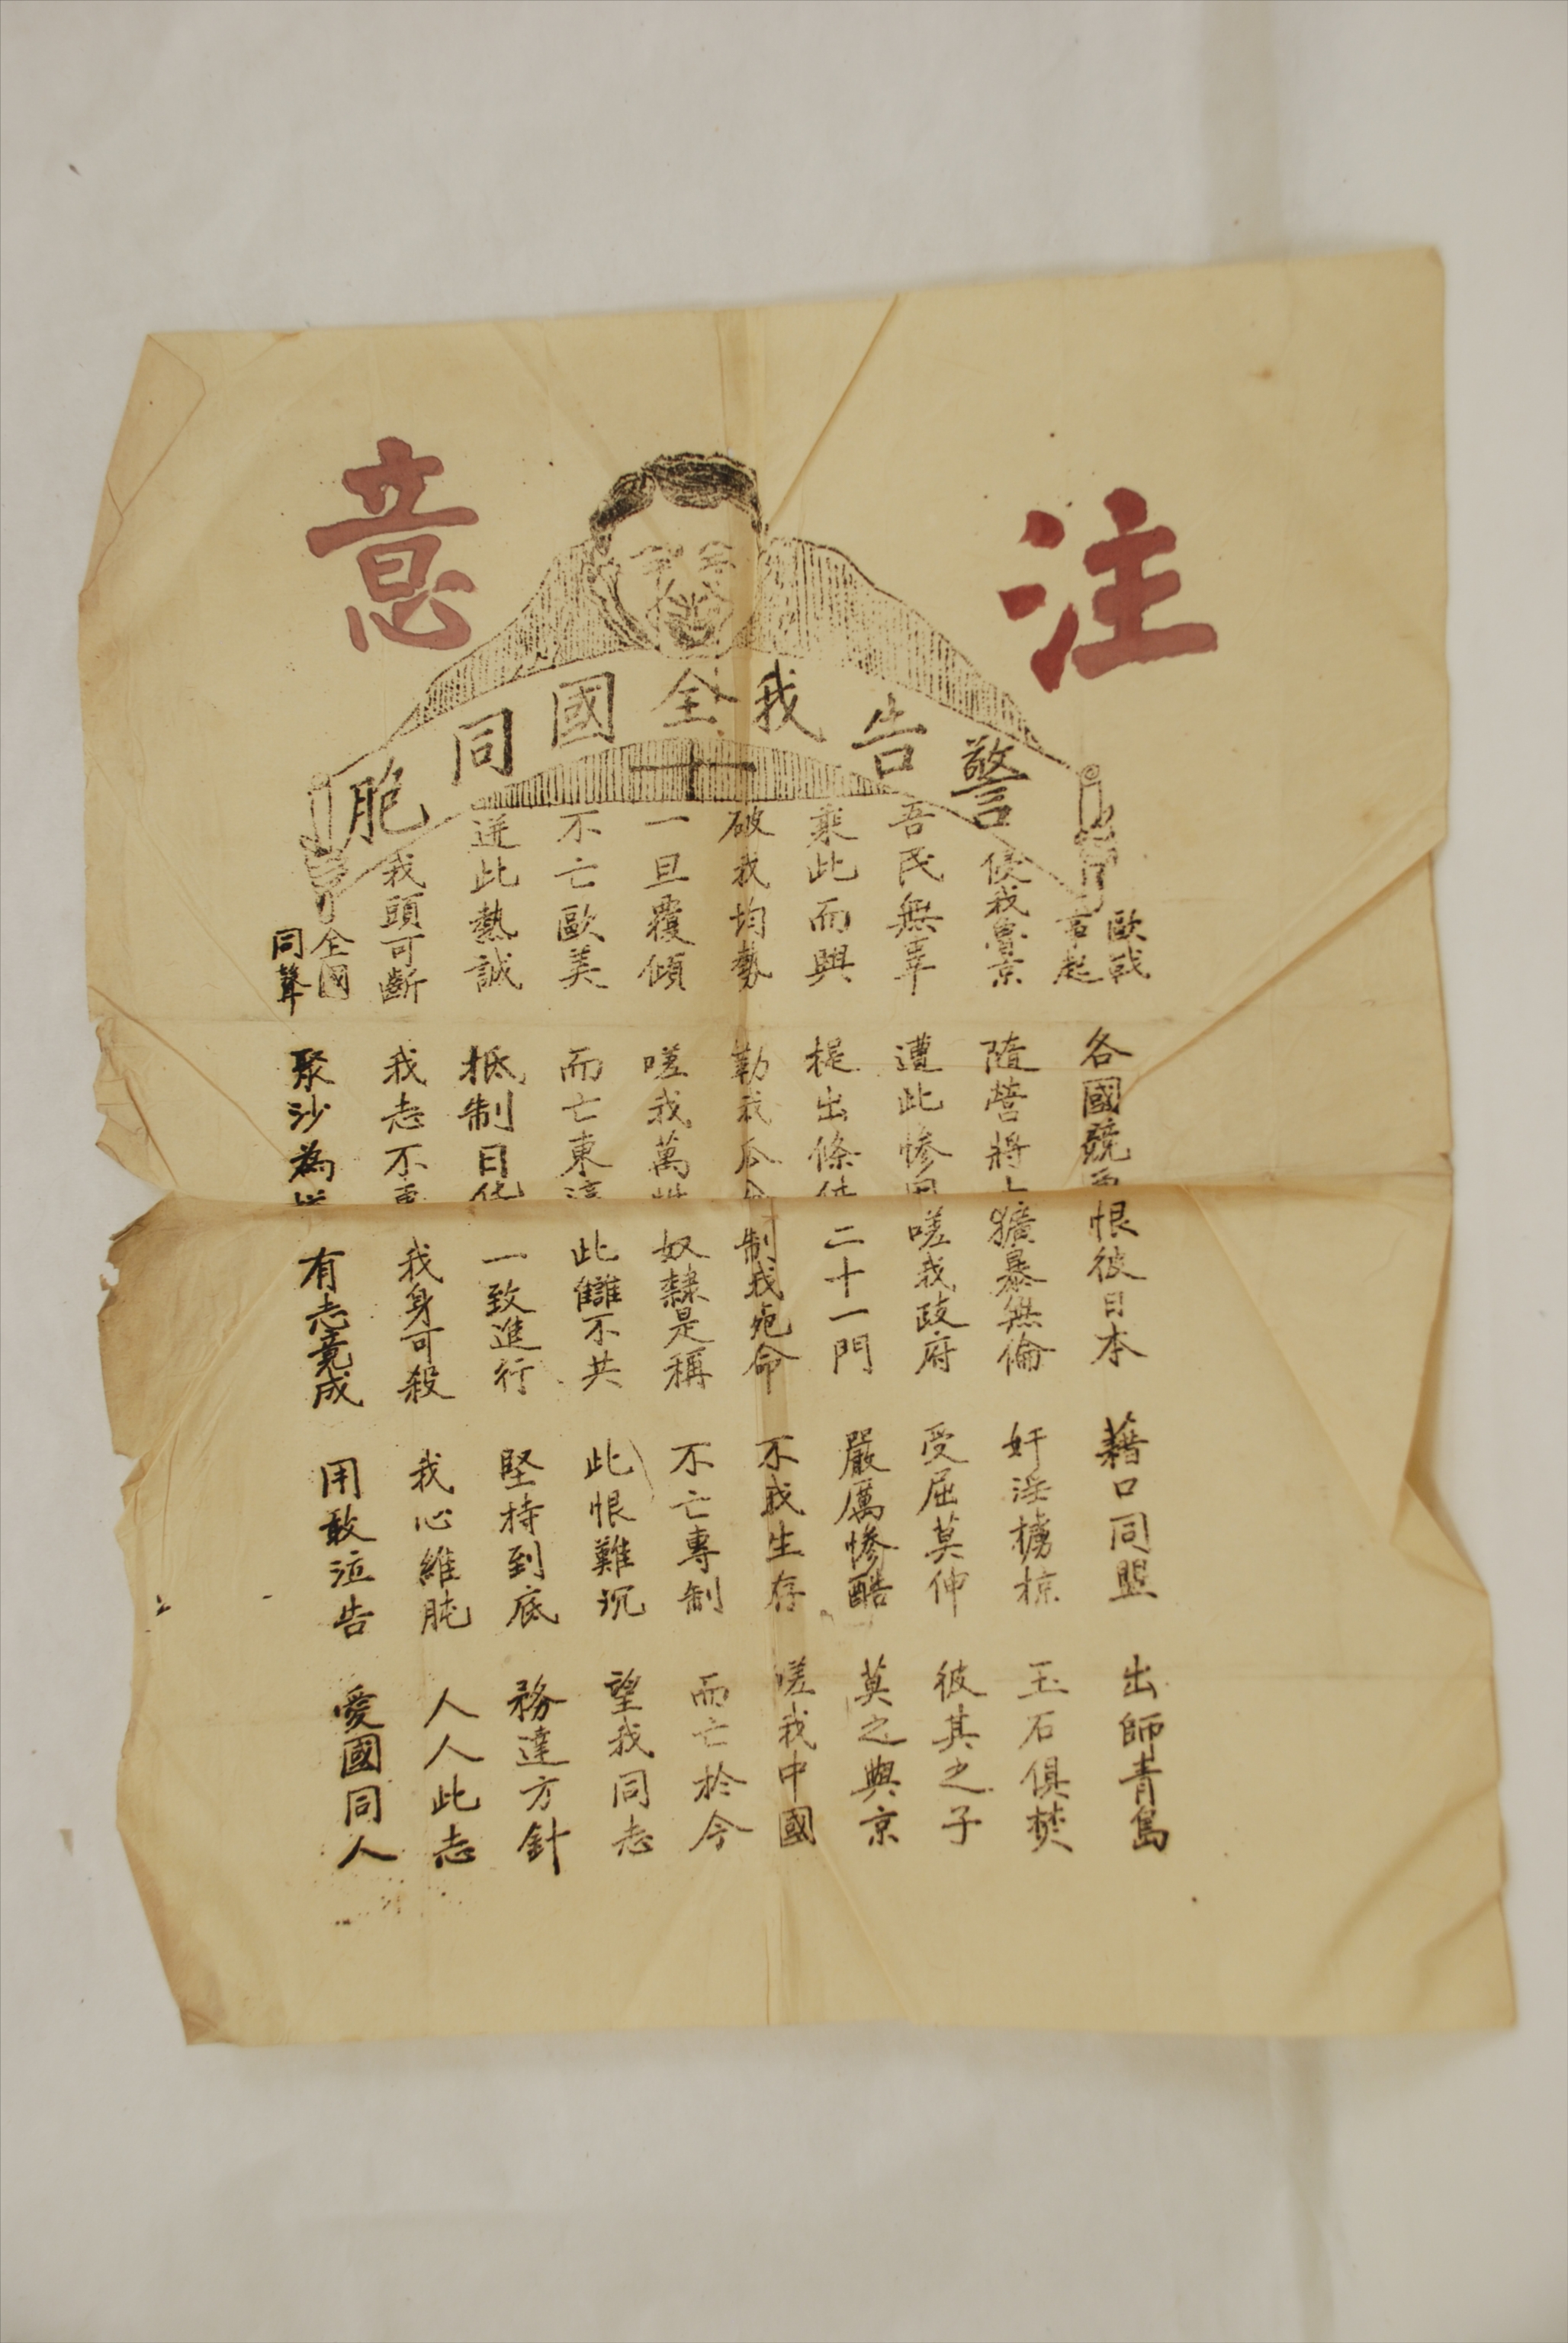 注意
警告我全國同胞
歐戰起 各國競 恨彼日本 藉口同盟 出師青島
侵我 景 隨營將 獷暴無倫 奸淫擄掠 玉石俱焚
吾民無辜 遭此慘 嗟我政府 受屈莫伸 彼其之子
乘此而興 提出條 二十一門 嚴厲慘酷 莫之與京
破我均勢 勒我瓜 制我死命 不我生存 嗟我中國
一旦覆傾 嗟我萬 奴隸是稱 不亡專制 而亡於今
不亡歐美 而亡東 此讎不共 此恨難沉 望我同志
迸此熱誠 抵制日 一致進行 堅持到底 務達方針
我頭可斷 我志不 我身可殺 我心維肫 人人此志
全國同聲 聚沙為 有志竟成 用敢泣告 愛國同人